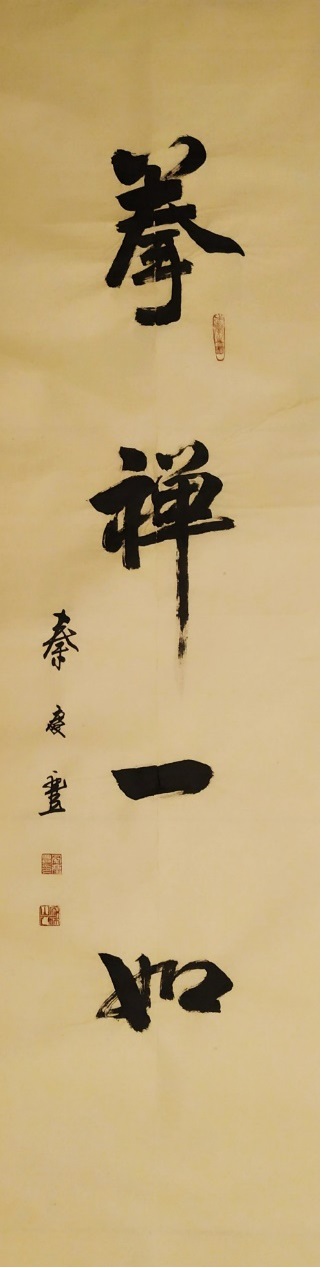 拳禅一如
秦慶豊